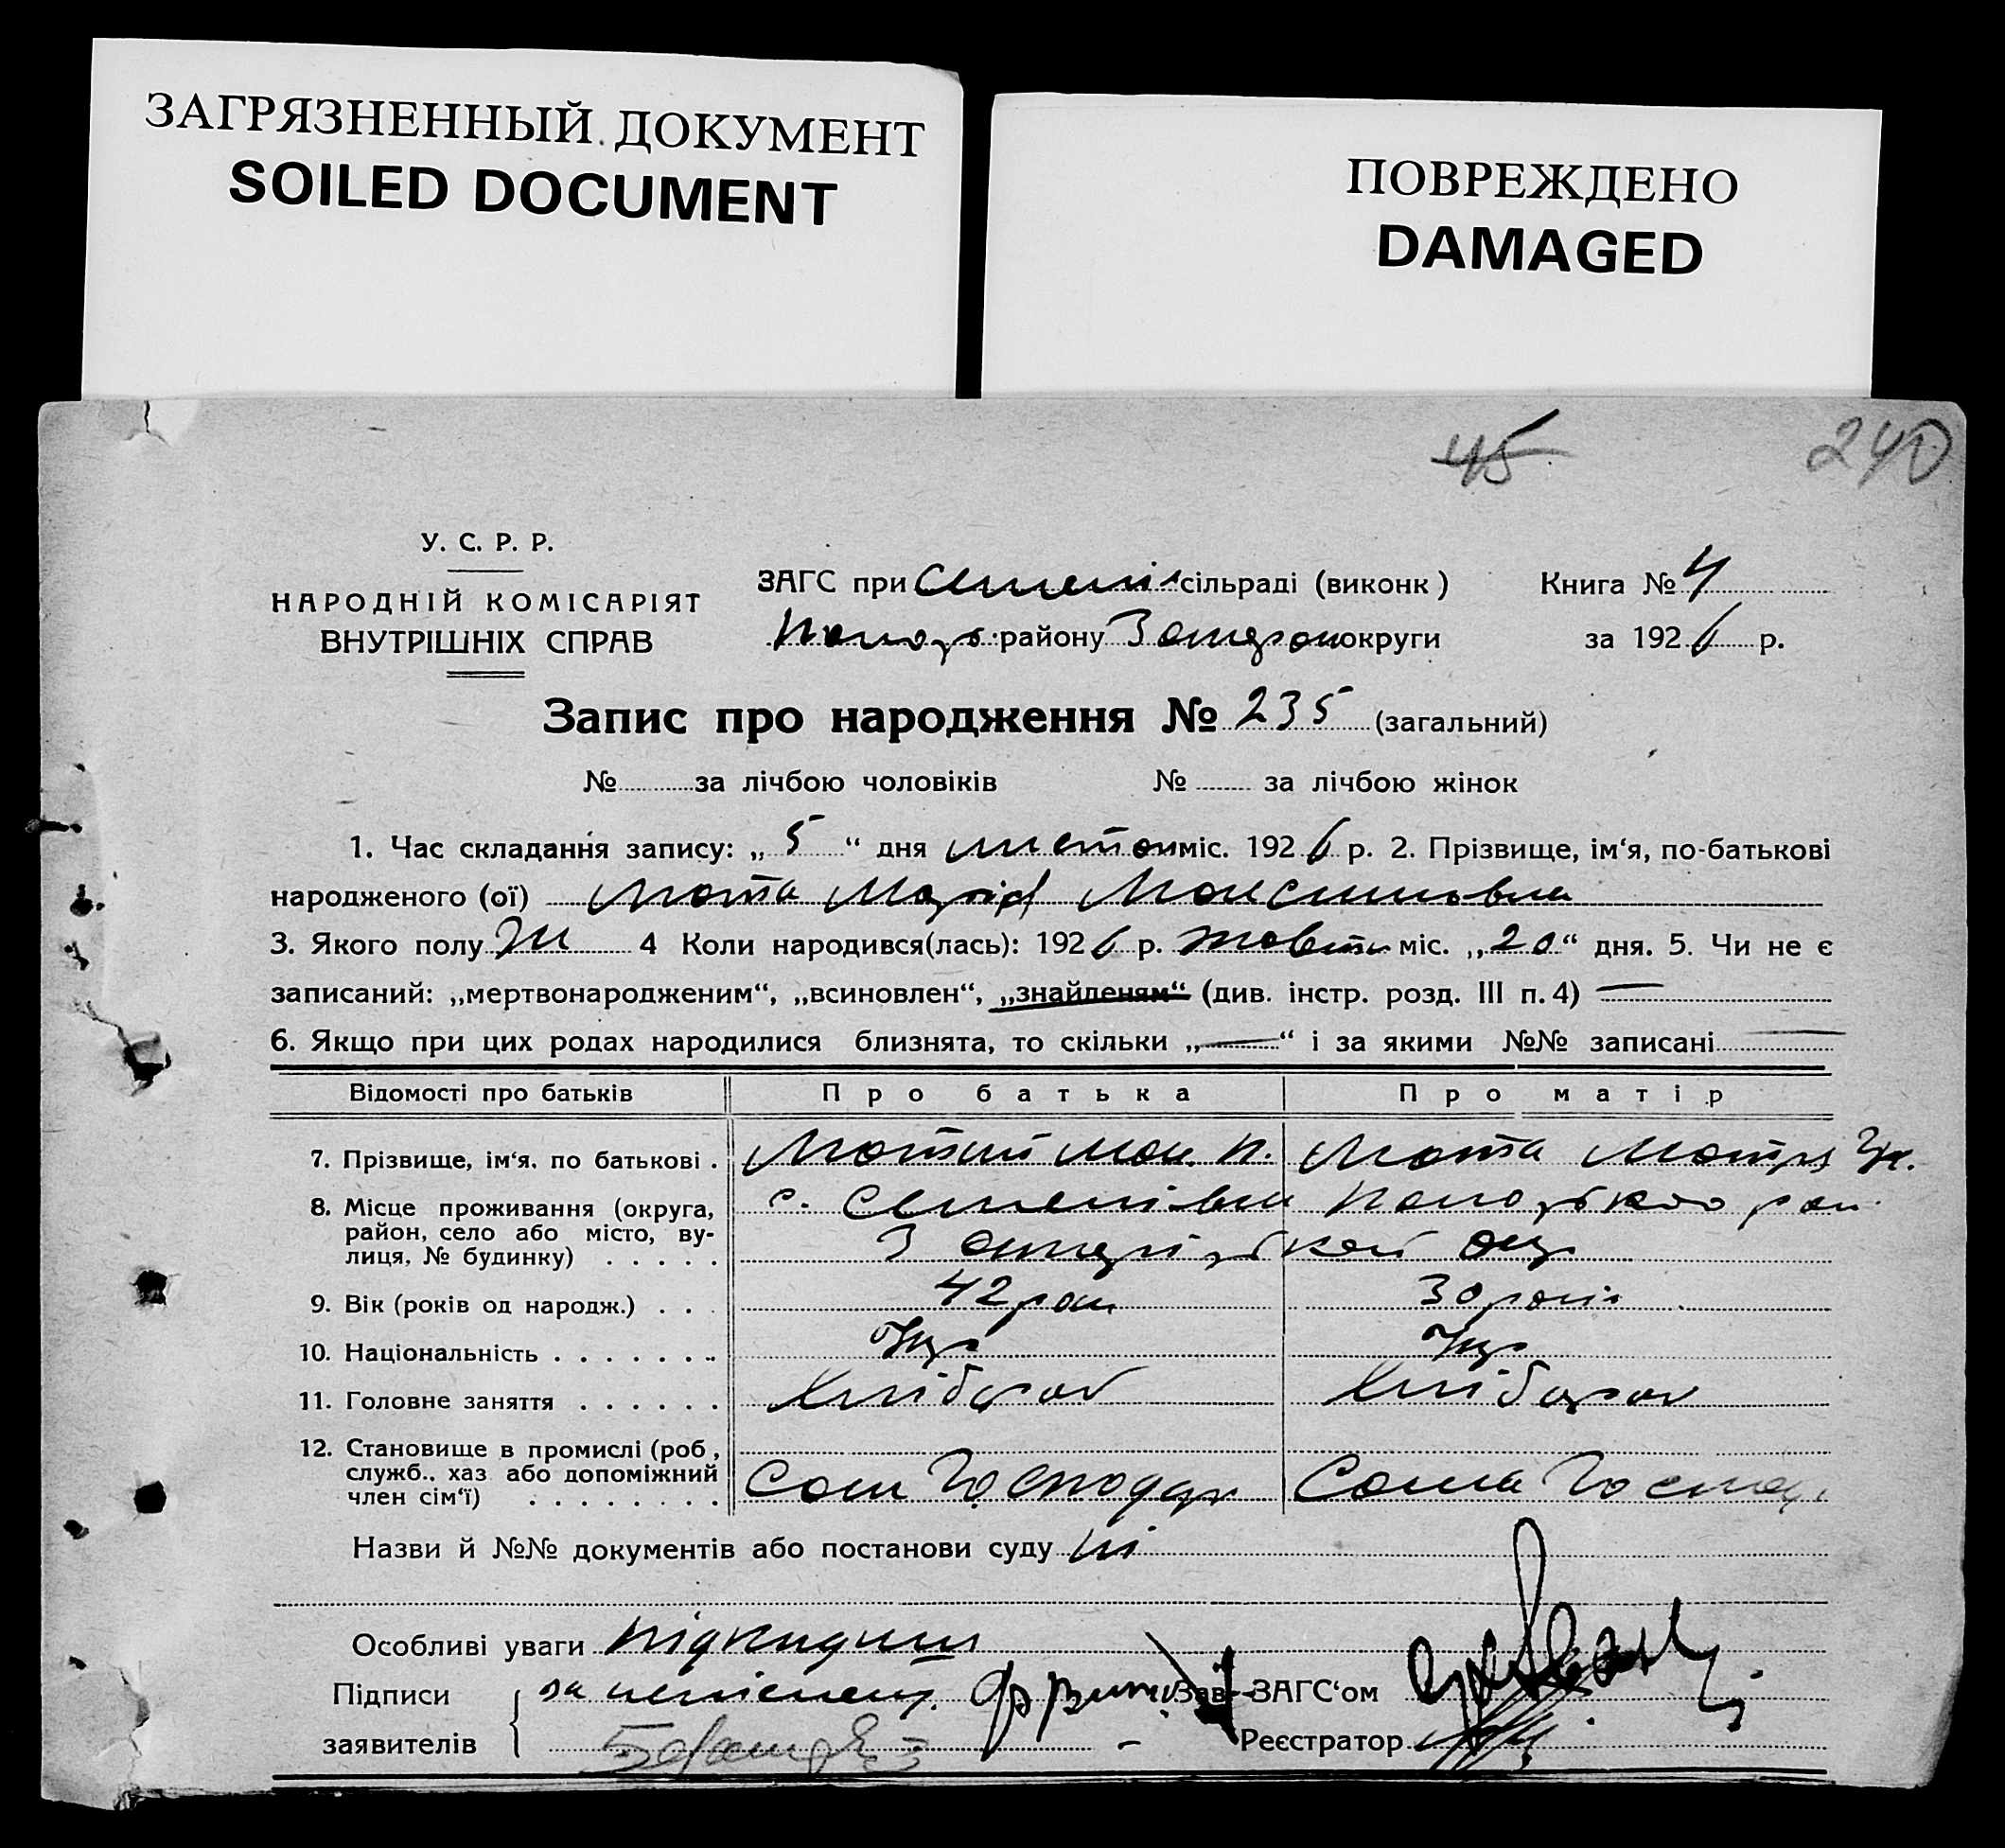 ЗАГРЯЗНЕННЫЙ ДОКУМЕНТ
SOILED DOCUMENT
ПОВРЕЖДЕНО
DAMAGED
45
240
У. С. Р. Р.
НАРОДНІЙ КОМІСАРІЯТ
ВНУТРІШНІХ СПРАВ
ЗАГС при Семенів сільраді (виконк)
району округи
Книга № 4
за 1926 р.
Запис про народження № 235 (загальний)
№ за лічбою чоловіків № за лічбою жінок
1. Час складання запису: „ 5 “ дня листоп міс. 1926 р. 2. Прізвище, ім‘я, по-батькові
народженого (ої) Мота Марія Максимовна
3. Якого полу Ж 4 Коли народився(лась): 1926 р. жовтн міс. „20“ дня. 5. Чи не є
записаний: „мертвонародженим“, „всиновлен“, „знайденям“ (див. інстр. розд. III п. 4) —
6. Якщо при цих родах народилися близнята, то скільки „—“ і за якими №№ записані —
Відомості про батьків Про батька Про матір
7. Прізвище, ім‘я. по батькові . Мак. Мота Мотря
8. Місце проживання (округа, с. Семенівка
район, село або місто, ву-
лиця, № будинку) . . . . . окр
9. Вік (років од народж.) . . . 42 рок 30 років
10. Національність . . . . . . . Укр Укр
11. Головне заняття . . . . . . Хлібороб Хлібороб
12. Становище в промислі (роб,
служб.. хаз або допоміжний Сам Господар Сама Господ.
член сім‘ї) . . . . . . . .
Назви й №№ документів або постанови суду ні
Особливі уваги
Підписи за неписьмен. Зав. ЗАГС‘ом
заявителів Реєстратор